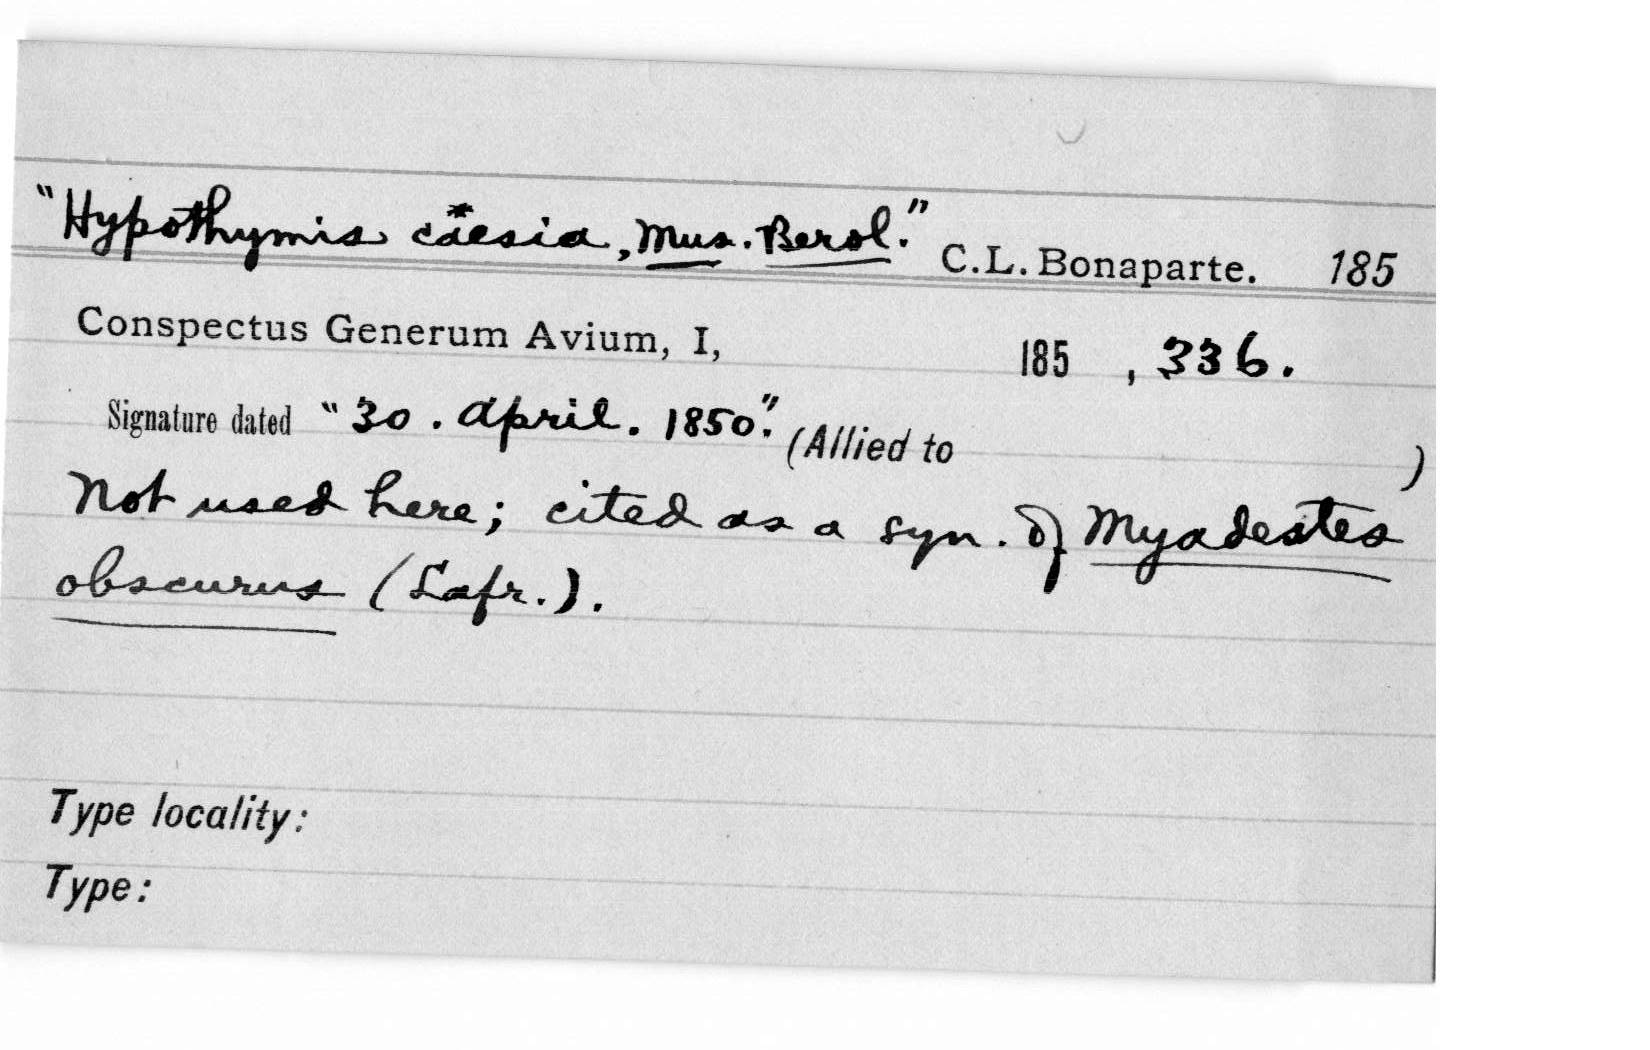 "Hypothymis caesia, Mus. Berol." C.L. Bonaparte. 185
Conspectus Generum Avium, I, 185 , 336.
Signature dated "30. April. 1850". (Allied to )
Not used here; cited as a syn. of Myadestes
obscurus (Lafr.).
Type locality:
Type: